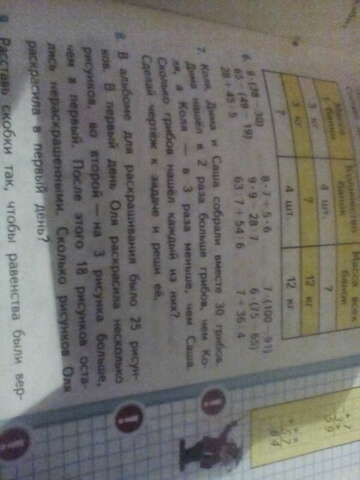 Масса
1 банки
банок
банок
3 кг
4 шт.
?
3 кг
?
12 кг
?
4 шт.
12 кг
6. 9 · (38 − 30) 8 · 7 + 5 · 6 7 · (100 − 91)
65 · (49 − 19) 9 · 9 − 28 : 7 6 · (75 − 65)
28 + 45 : 5 63 : 7 + 54 : 6 7 + 36 : 4
7. Коля, Дима и Саша собрали вместе 30 грибов.
Дима нашёл в 2 раза больше грибов, чем Ко-
ля, а Коля — в 3 раза меньше, чем Саша.
Сколько грибов нашёл каждый из них?
Сделай чертёж к задаче и реши её.
8. В альбоме для раскрашивания было 25 рисун-
ков. В первый день Оля раскрасила несколько
рисунков, во второй — на 3 рисунка больше,
чем в первый. После этого 18 рисунков оста-
лись нераскрашенными. Сколько рисунков Оля
раскрасила в первый день?
9 Расставь скобки так, чтобы равенства были вер-